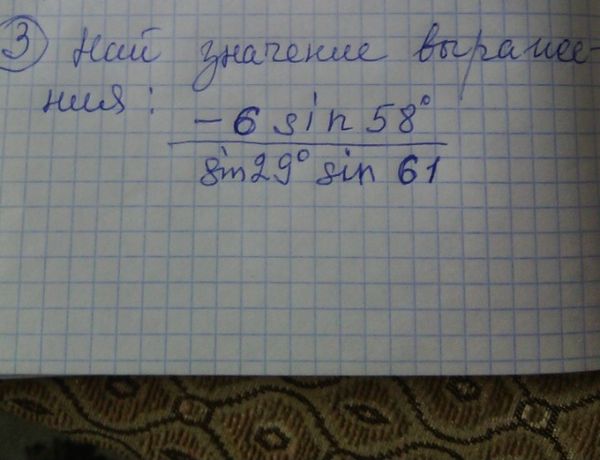 3 Най значение выражее-
ния:
-6 sin 58°
sin 29° sin 61